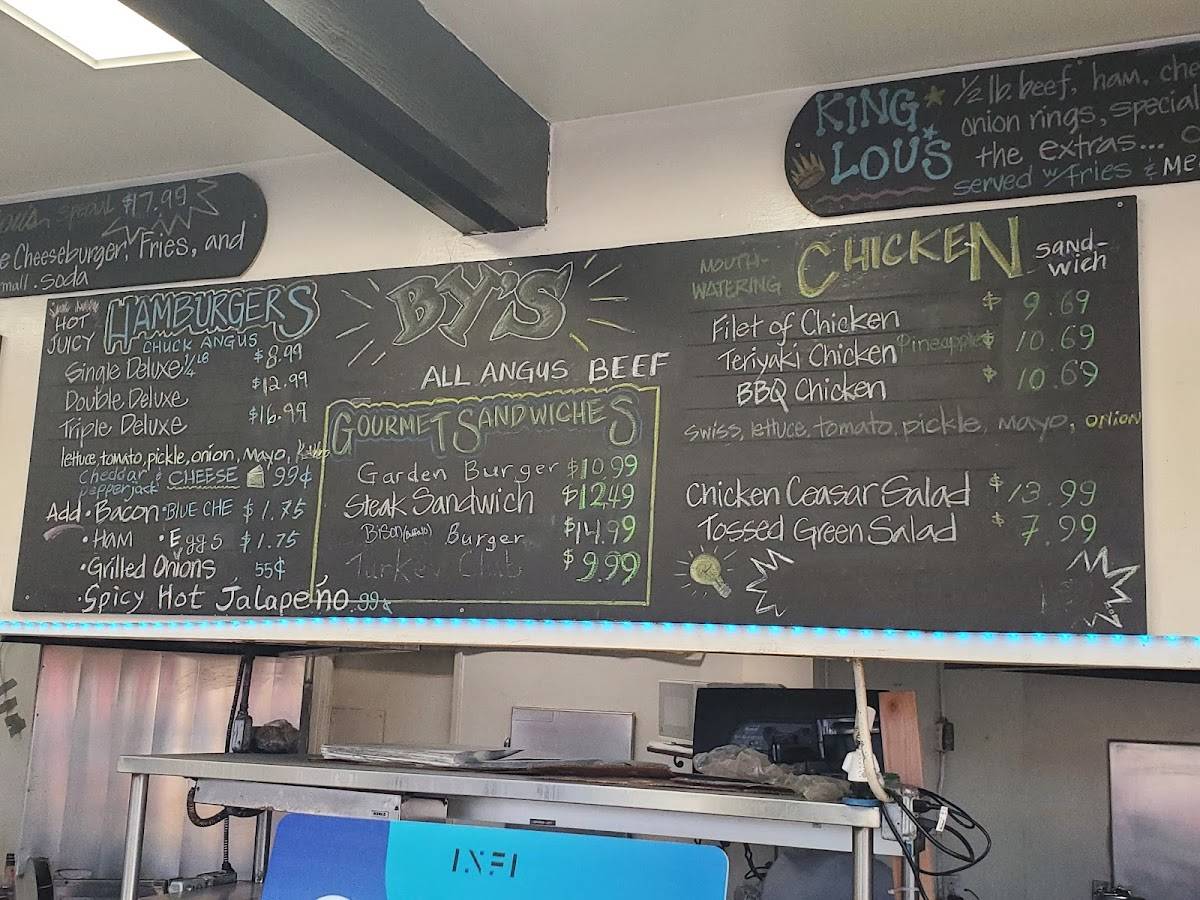 Special $17.99
e Cheeseburger, Fries, and
mall. soda
KING LOU'S
1/2 lb. beef, ham, che
onion rings, special
the extras... C
served w/fries & ME
HOT JUICY HAMBURGERS
CHUCK ANGUS
Single Deluxe 1/4 LB $8.99
Double Deluxe $12.99
Triple Deluxe $16.99
lettuce, tomato, pickle, onion, Mayo,
Cheddar & pepperjack CHEESE 99¢
Add • Bacon • BLUE CHE $1.75
• HAM • Eggs $1.75
• Grilled Onions 55¢
• Spicy Hot Jalapeño .99¢
BY'S
ALL ANGUS BEEF
GOURMET SANDWICHES
Garden Burger $10.99
Steak Sandwich $12.49
Bison (Buffalo) Burger $14.99
Turkey Club $9.99
MOUTH-WATERING CHICKEN SAND-WICH
Filet of Chicken $9.69
Teriyaki Chicken Pineapple $10.69
BBQ Chicken $10.69
Swiss, lettuce, tomato, pickle, Mayo, onion
Chicken Ceasar Salad $13.99
Tossed Green Salad $7.99
INFI